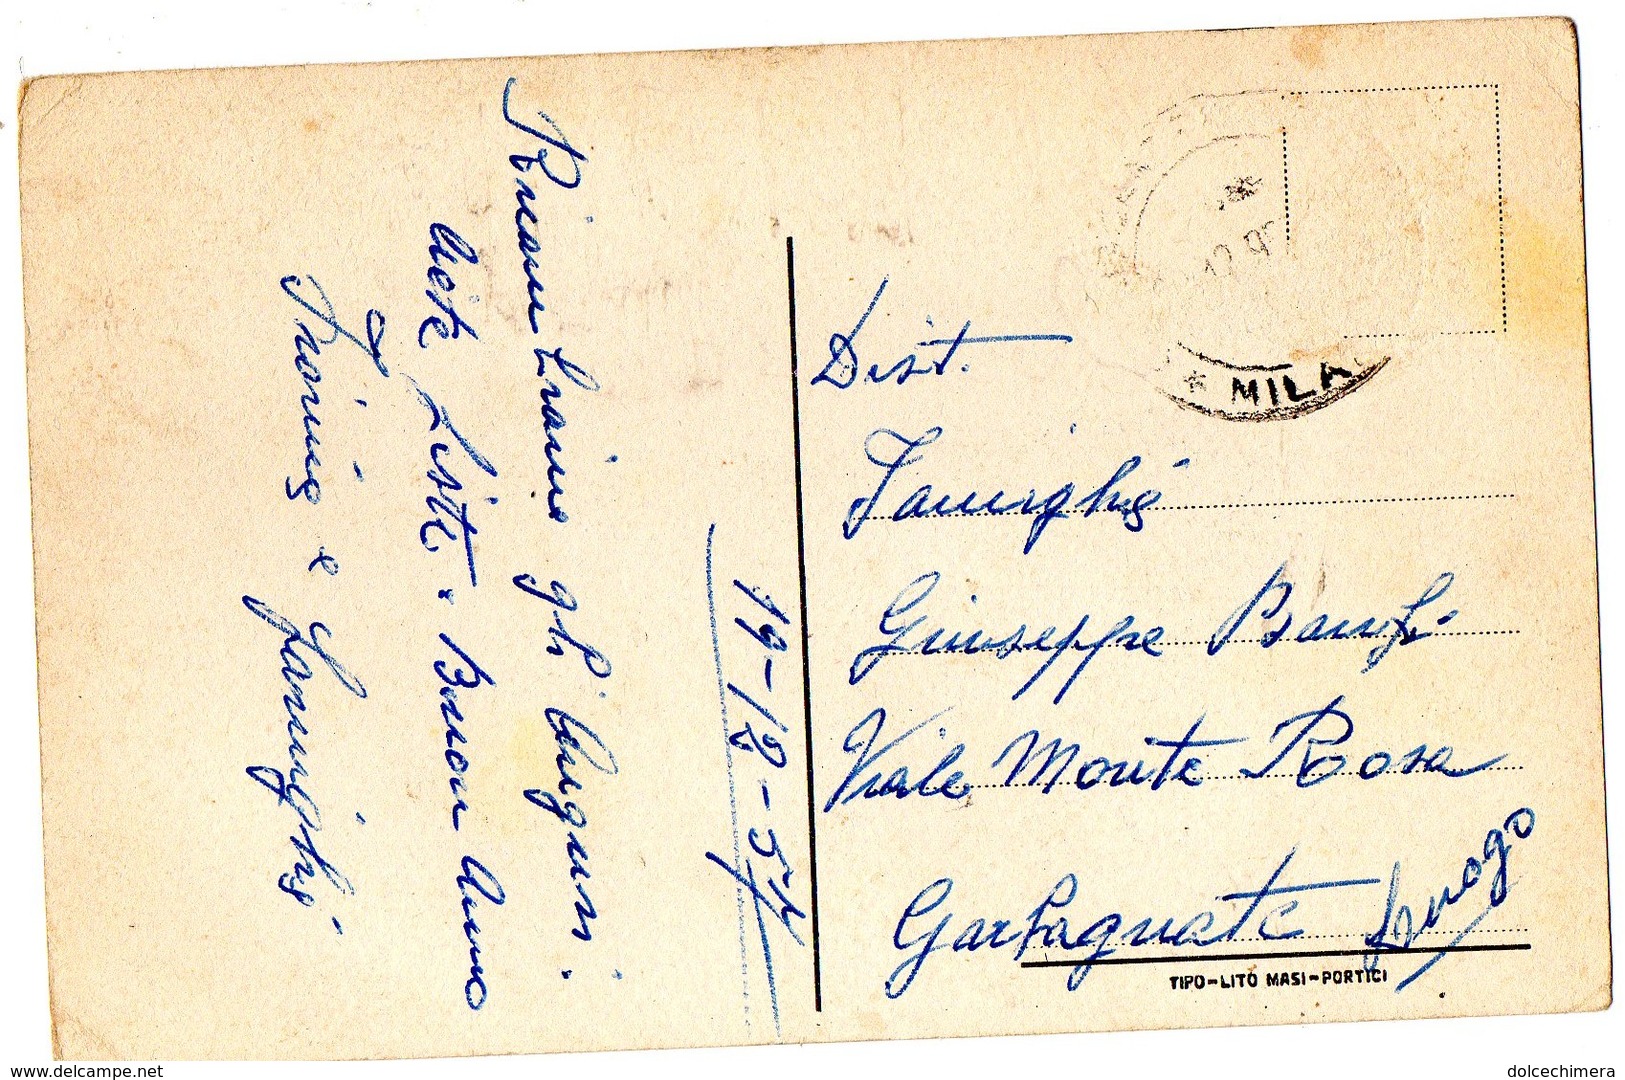 Ricambiamo gli Auguri.
Liete Feste e Buon Anno
e Famiglia
19-12-54
Dist.
Famiglia
Giuseppe Banfi
Viale Monte Rosa
Garbagnate
* MILA
TIPO-LITO MASI-PORTICI
www.delcampe.net
dolcechimera